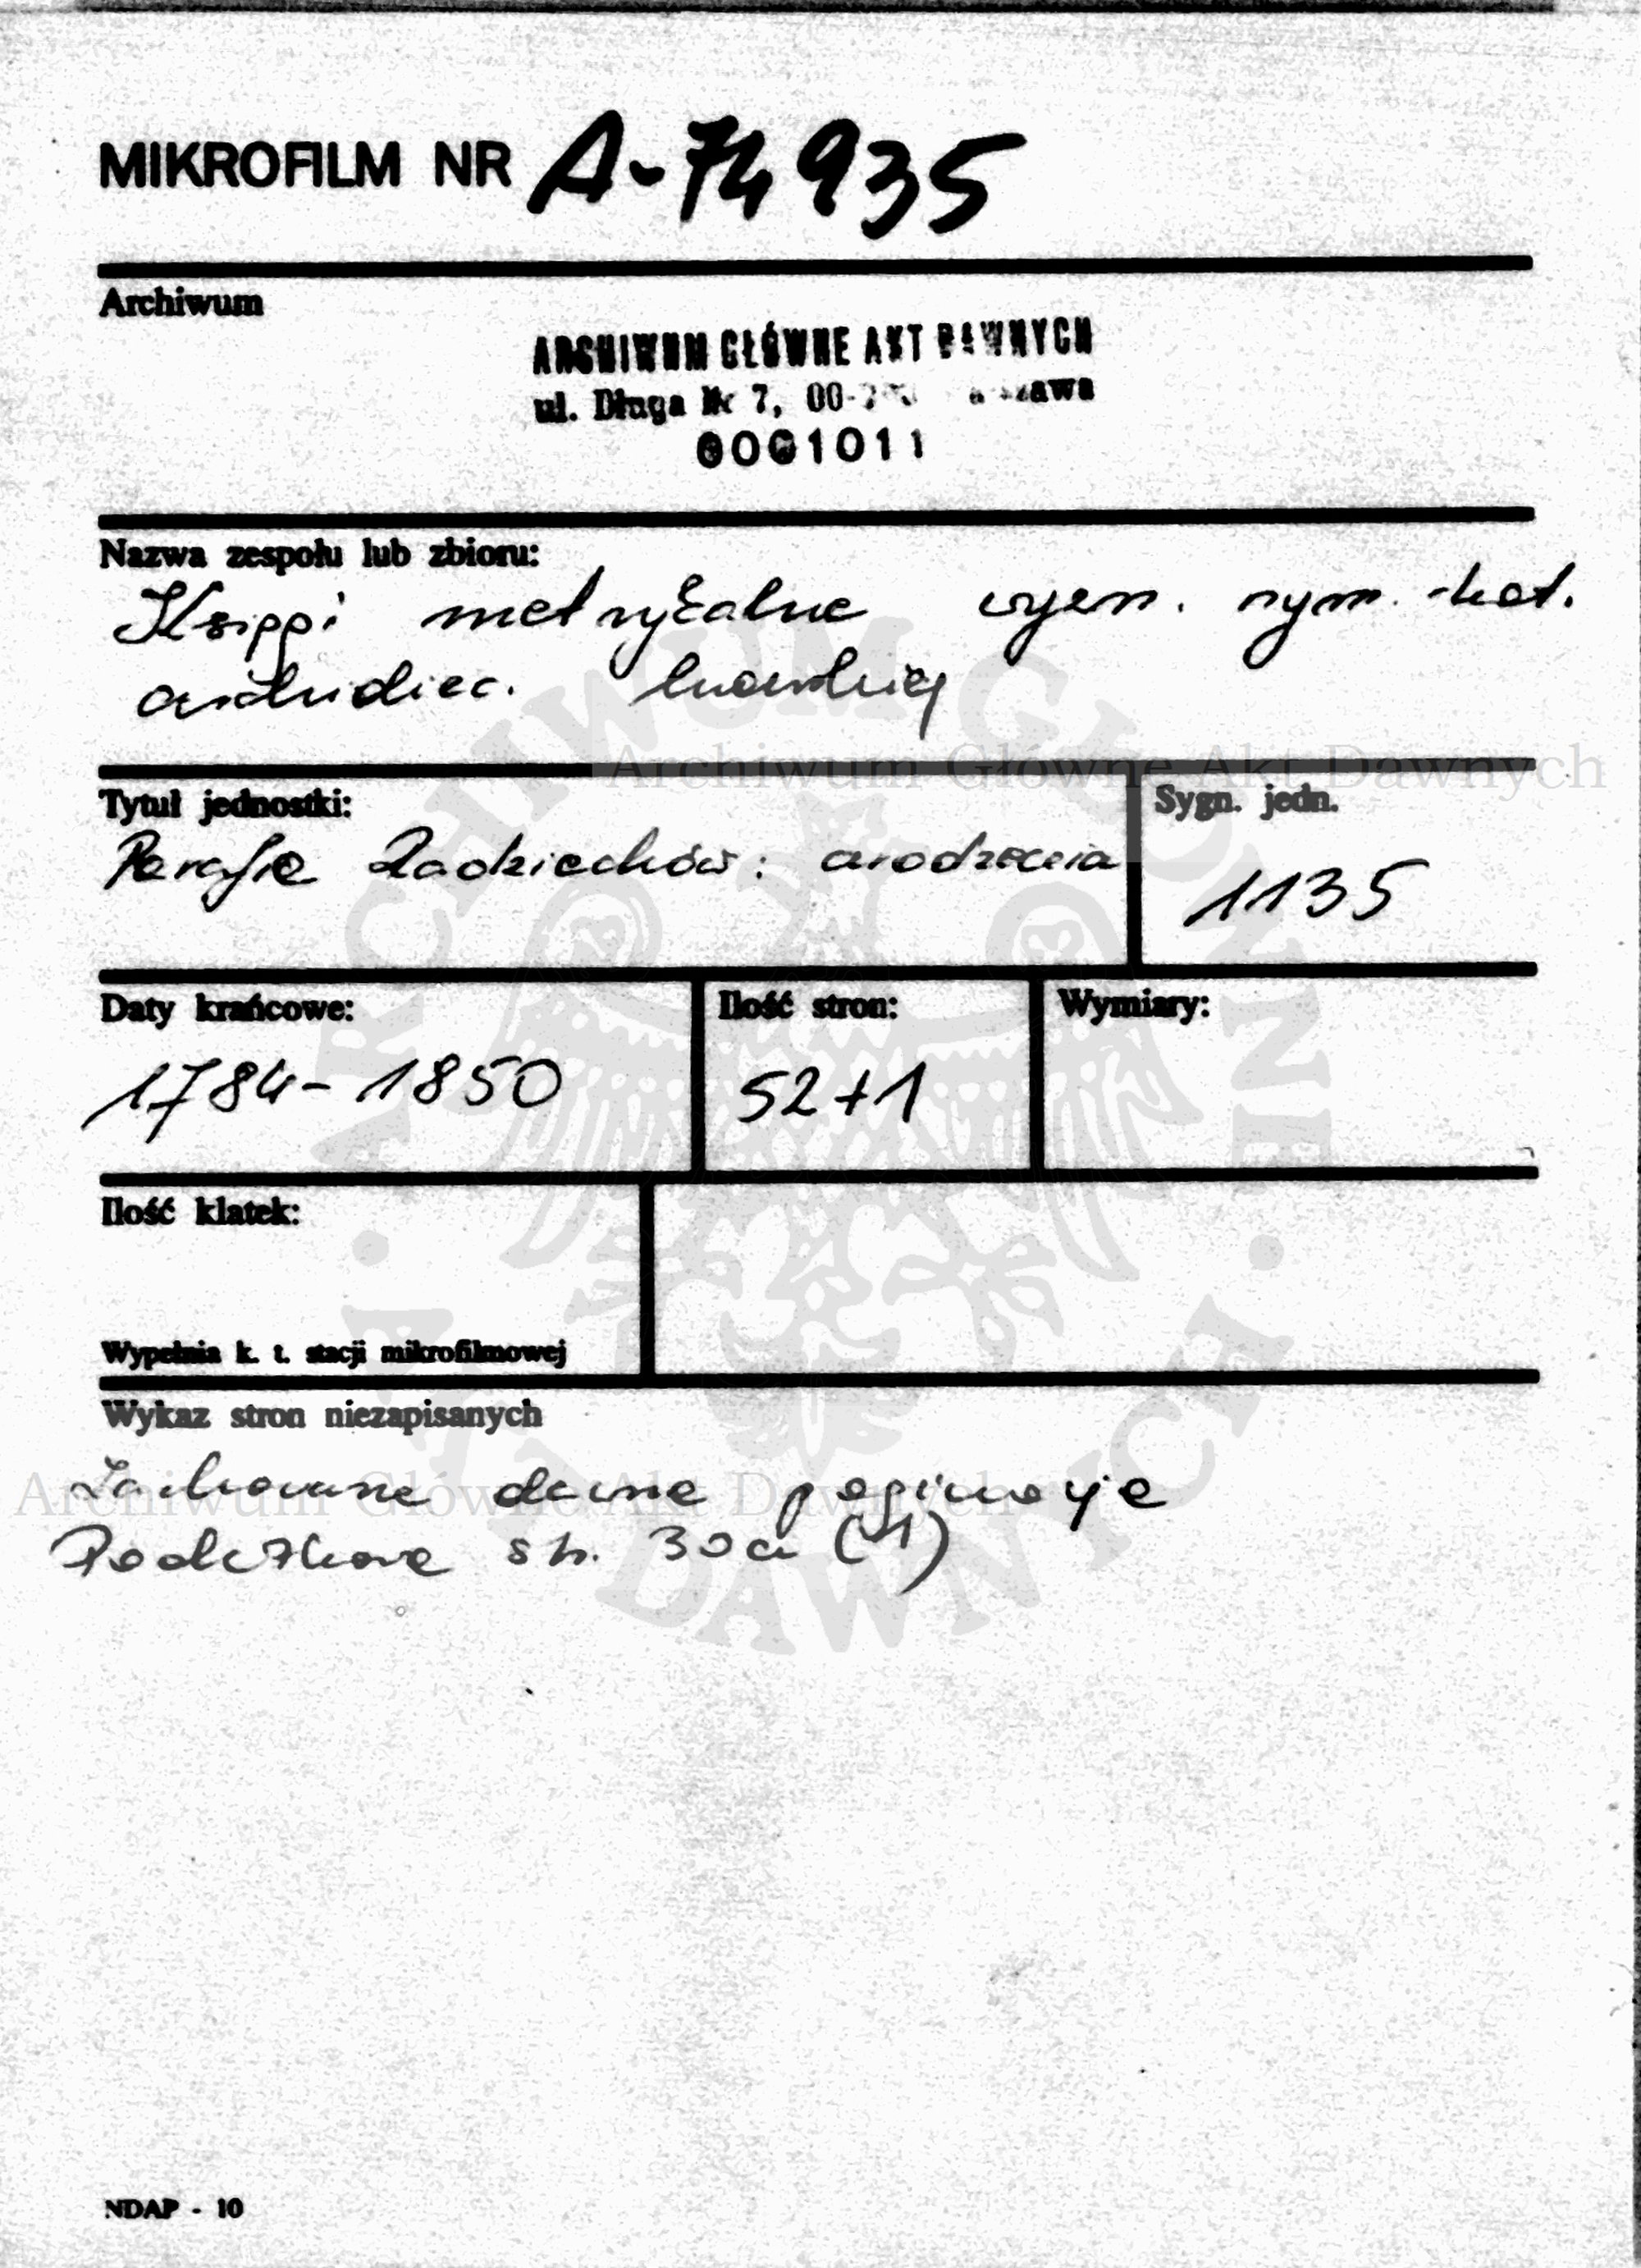 MIKROFILM NR A-74935
Archiwum
ARCHIWUM GŁÓWNE AKT DAWNYCH
ul. Długa Nr 7, 00-
0001011
Nazwa zespołu lub zbioru:
Księgi metrykalne wyzn. rzym.-kat.
archidiec. lwowskiej
Archiwum Główne Akt Dawnych
Tytuł jednostki:
Sygn. jedn.
Parafia Radziechów: urodzenia
1135
Daty krańcowe:
Ilość stron:
Wymiary:
1784-1850
52+1
Ilość klatek:
Wypełnia k. t. stacji mikrofilmowej
Wykaz stron niezapisanych
Zachowane dawne paginacje
Archiwum Główne Akt Dawnych
str. 30a (1)
ARCHIWUM GŁÓWNE · AKT DAWNYCH ·
NDAP - 10